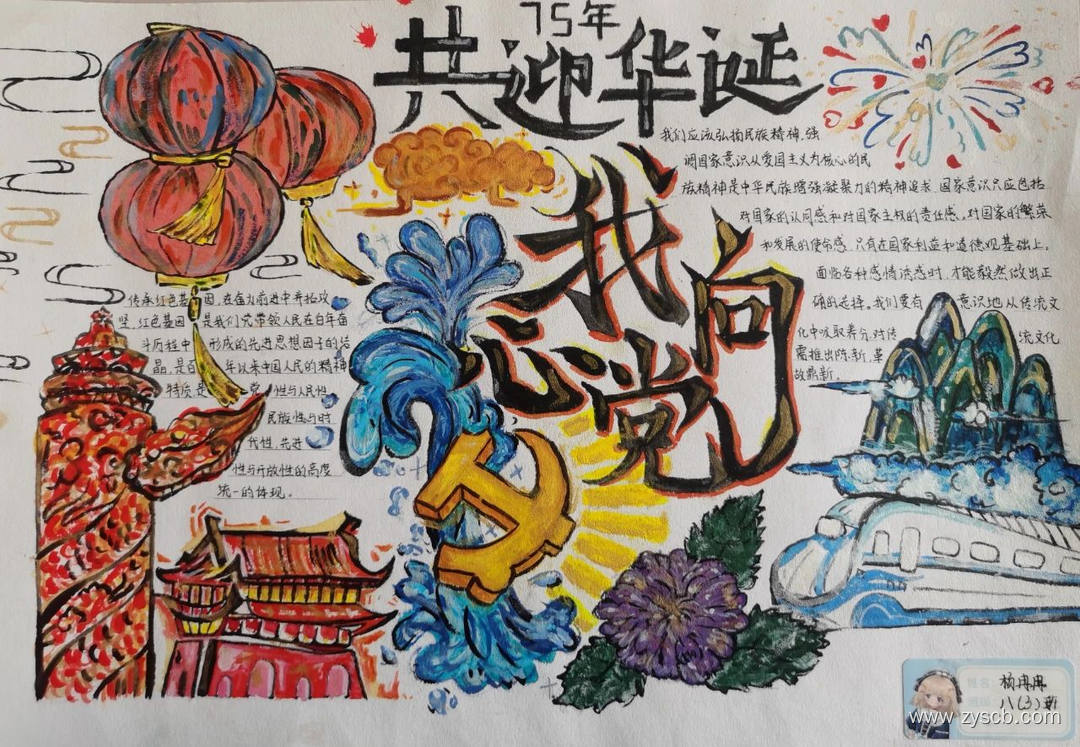 75年
共迎华诞
我们应该弘扬民族精神,强
调国家意识从爱国主义为核心的民
族精神是中华民族增强凝聚力的精神追求.国家意识只应包括
对国家的认同感和对国家主权的责任感。对国家的繁荣
和发展的使命感.只有在国家利益和道德观基础上,
面临各种感情诱惑时.才能毅然做出正
确的选择.我们要有 意识地从传流文
化中吸取养分.对传 流文化
需推出陈新.革
故鼎新
我心向党
传承红色基 因.在奋力前进中开拓攻
坚.红色基因 是我们党带领人民在百年奋
斗历程中 形成的先进思想因子的结
晶,是百 年以来中国人民的精神
特质是 党 性与人民性
民族性与时
代性.先进
性与开放性的高度
统一的体现。
姓名 杨冉冉
八(3)班
www.zyscb.com